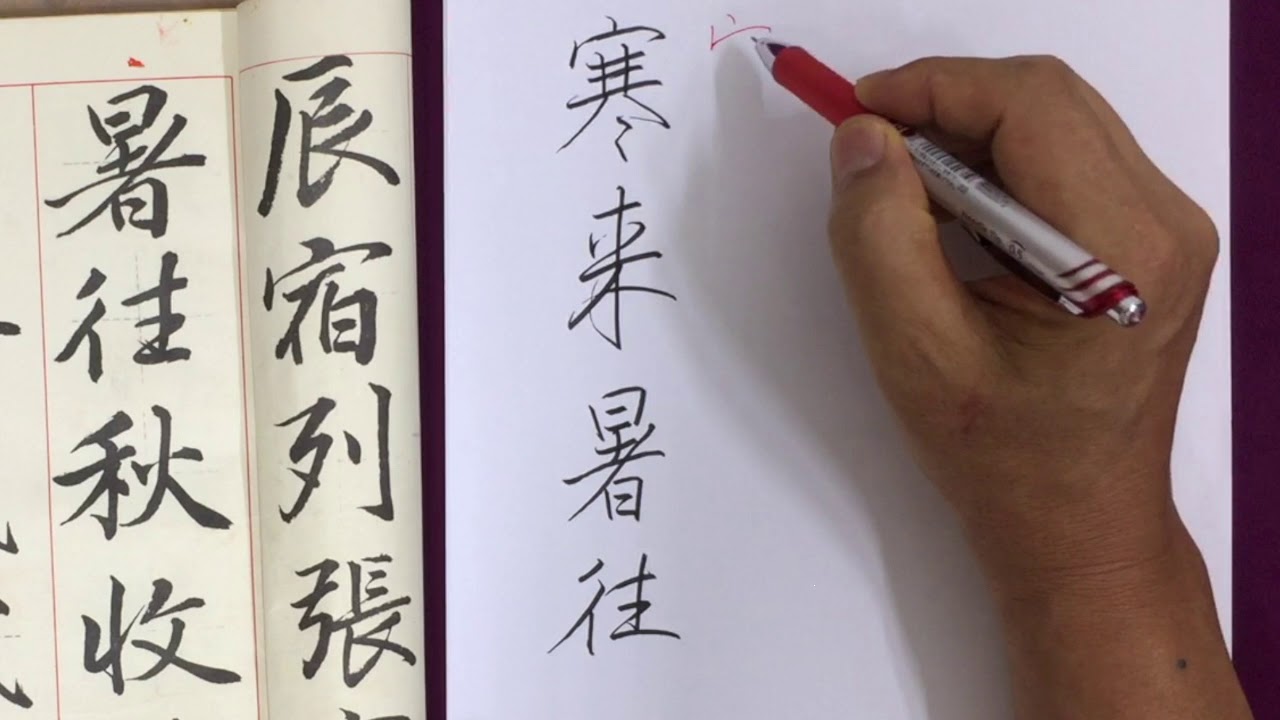 辰宿列張
暑往秋收
寒来暑往